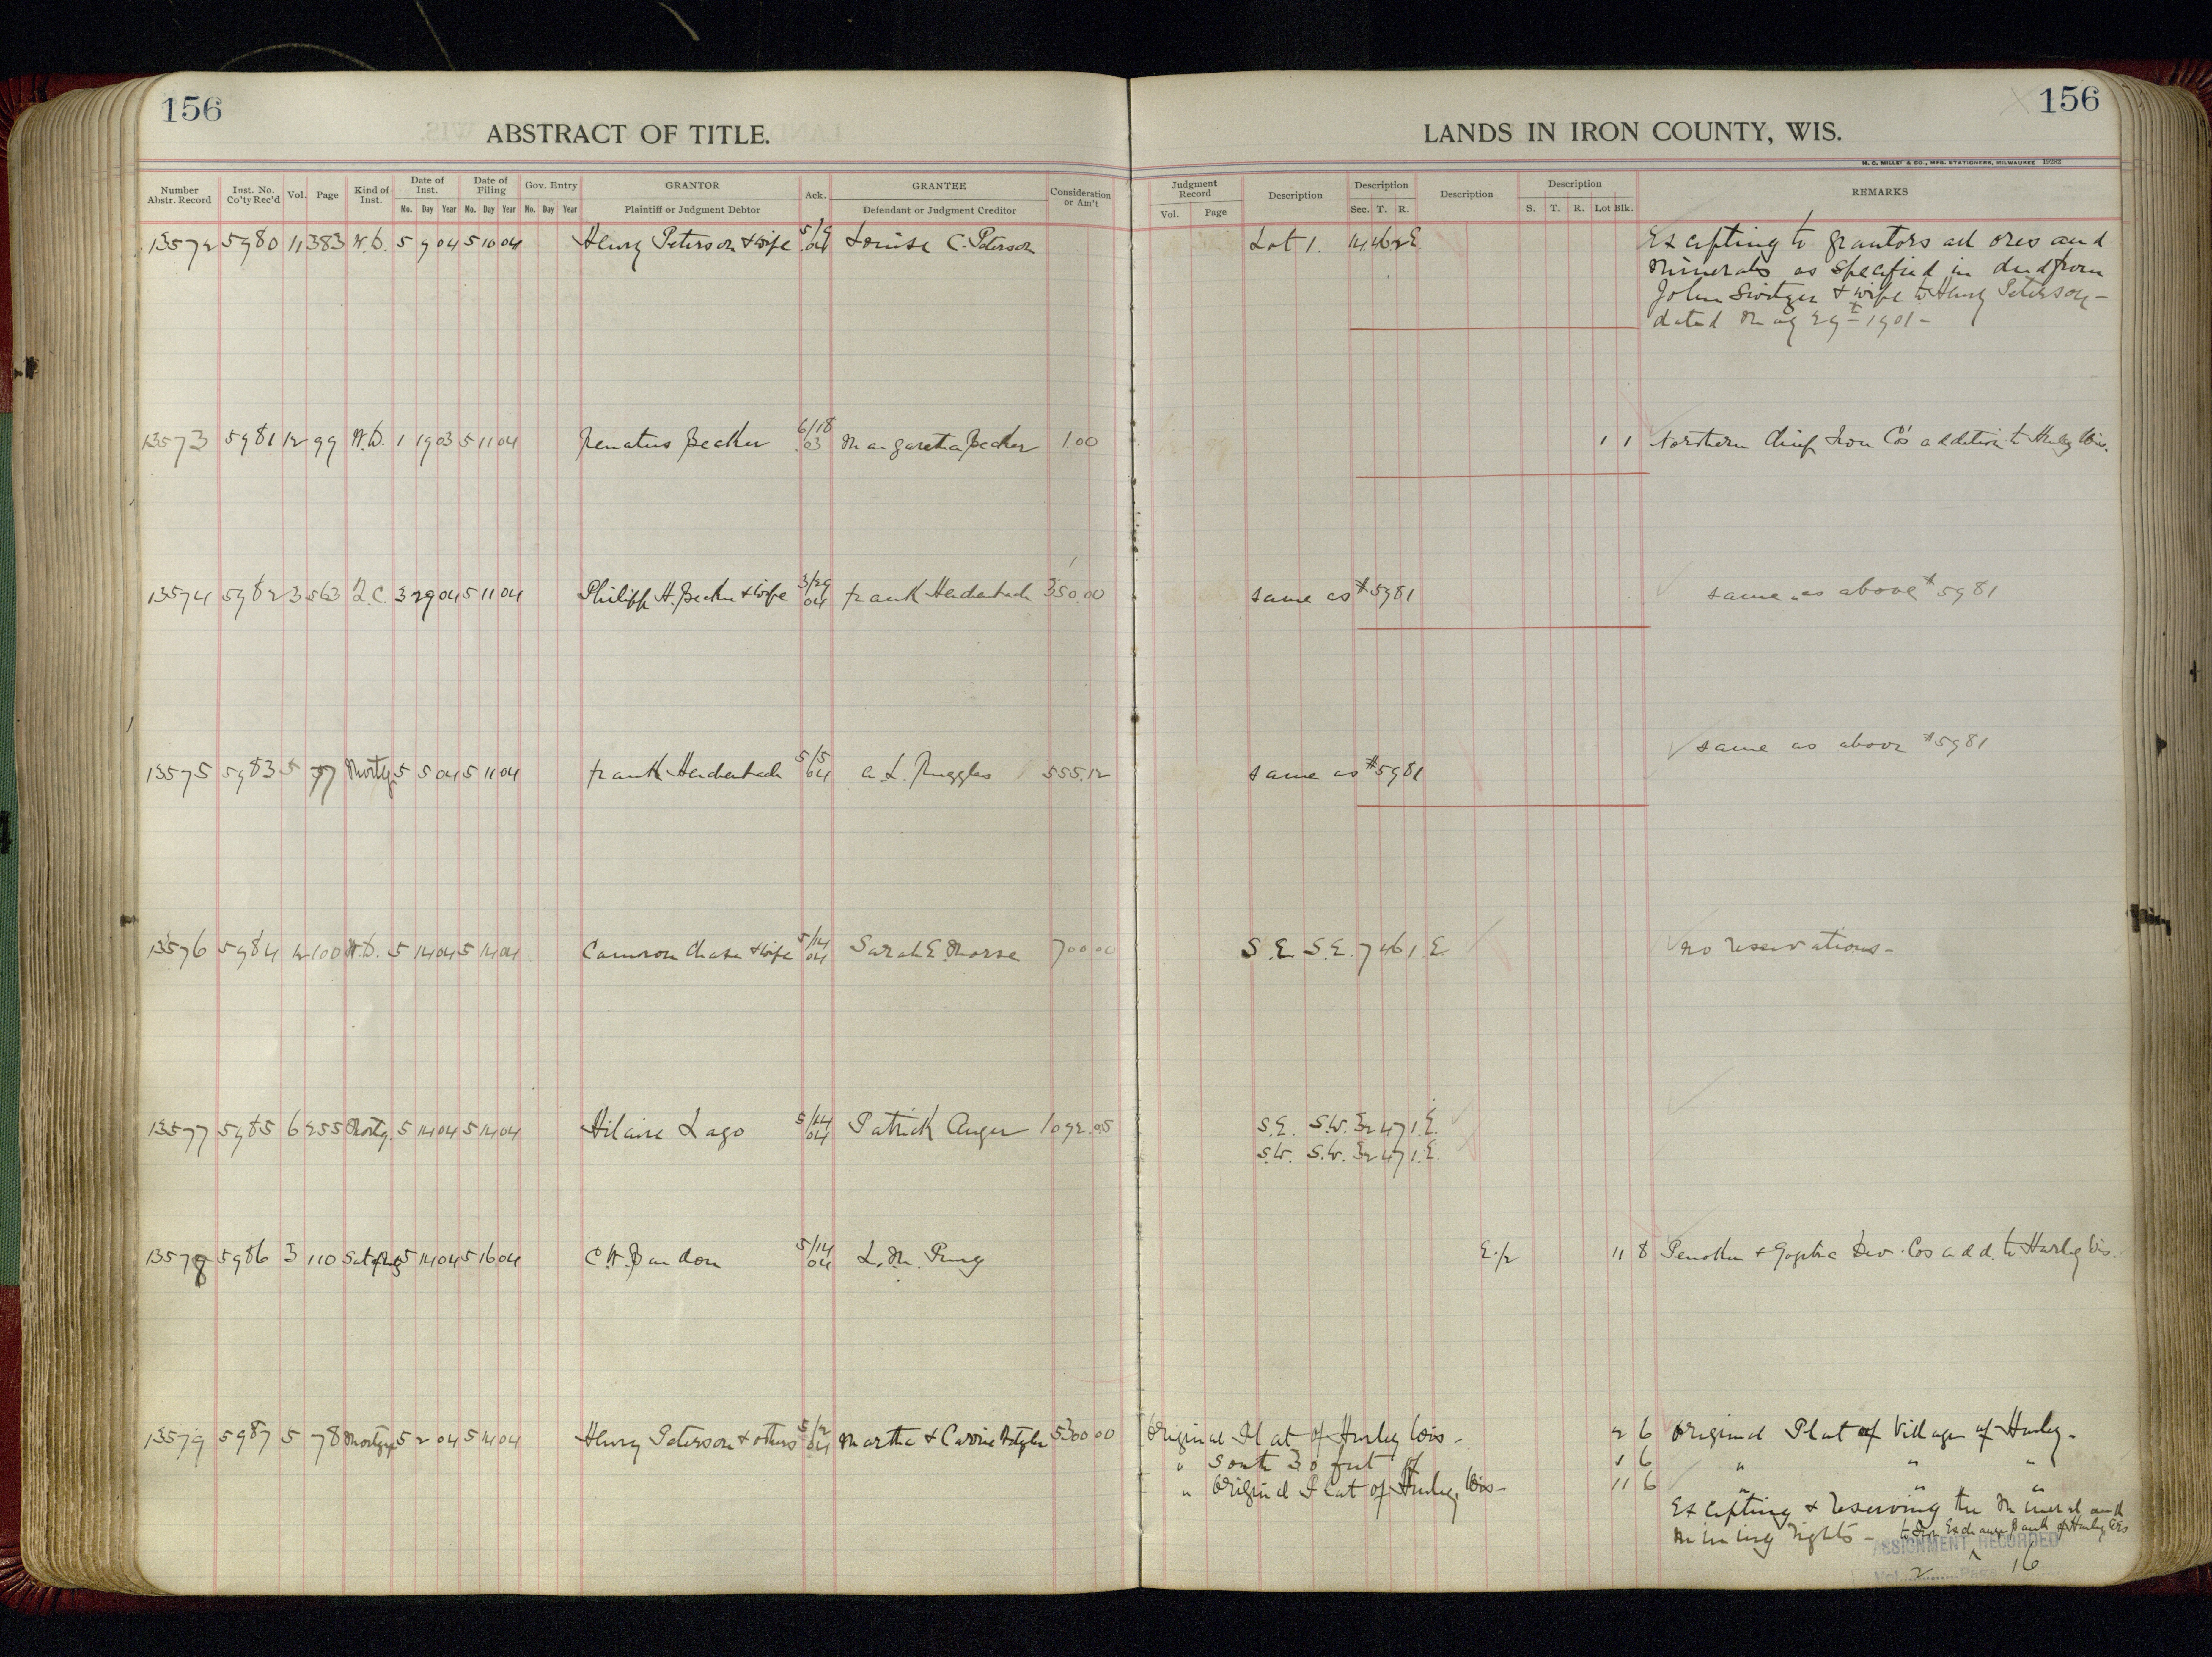 156
ABSTRACT OF TITLE.
156
LANDS IN IRON COUNTY, WIS.
H. C. MILLER & CO., MFG. STATIONERS, MILWAUKEE 19282
Number Abstr. Record Inst. No. Co'ty Rec'd Vol. Page Kind of Inst. Date of Inst. Date of Filing Gov. Entry GRANTOR Ack. GRANTEE Consideration or Am't Judgment Record Description Description Description Description REMARKS
Mo. Day Year Mo. Day Year Mo. Day Year Plaintiff or Judgment Debtor Defendant or Judgment Creditor Vol. Page Sec. T. R. S. T. R. Lot Blk.
13572 5980 11 383 W.D. 5 9 04 5 10 04 Henry Peterson & wife 5/9 04 Louise C. Peterson Lot 1. 14 46 2 E Excepting to grantors all ores and
minerals as specified in deed from
John Switzer & wife to Henry Peterson -
dated May 29t 1901 -
13573 5981 12 99 W.D. 1 19 03 5 11 04 Renatus Becker 6/18 03 Margaretha Becker 1.00 1 1 Northern Chief Iron Co's addition to Hurley Wis.
13574 5982 3 563 Q.C. 3 29 04 5 11 04 Philipp H. Becker & wife 3/29 04 Frank Heidenbach 350.00 same as #5981 same as above #5981
13575 5983 5 77 Mortg 5 5 04 5 11 04 Frank Heidenbach 5/5 04 A. L. Ruggles 555.12 same as #5981 same as above #5981
13576 5984 12 100 W.D. 5 14 04 5 14 04 Cameron Chase & wife 5/14 04 Sarah E. Morse 700 00 S.E. S.E. 7 46 1. E. no reservations -
13577 5985 6 255 Mortg. 5 14 04 5 14 04 Hilaire Lago 5/14 04 Patrick Auger 1092.05 S.E. S.W. 32 47 1. E.
S.W. S.W. 32 47 1. E.
13578 5986 3 110 Sat of Mtg 5 14 04 5 16 04 5/14 04 L. M. E. 1/2 11 8 Penokee & Gogebic Dev. Cos add. to Hurley Wis.
13579 5987 5 78 Mortgage 5 2 04 5 14 04 Henry Peterson & others 5/2 04 Martha & Carrie 5300 00 Original Plat of Hurley Wis - 2 6 Original Plat of Village of Hurley -
" South 30 feet of 1 6 " " "
" Original Plat of Hurley, Wis - 11 6 " " "
Excepting & reserving the mineral and
mining rights - to Iron Exchange Bank of Hurley Wis
ASSIGNMENT RECORDED
Vol. 2 Page 16